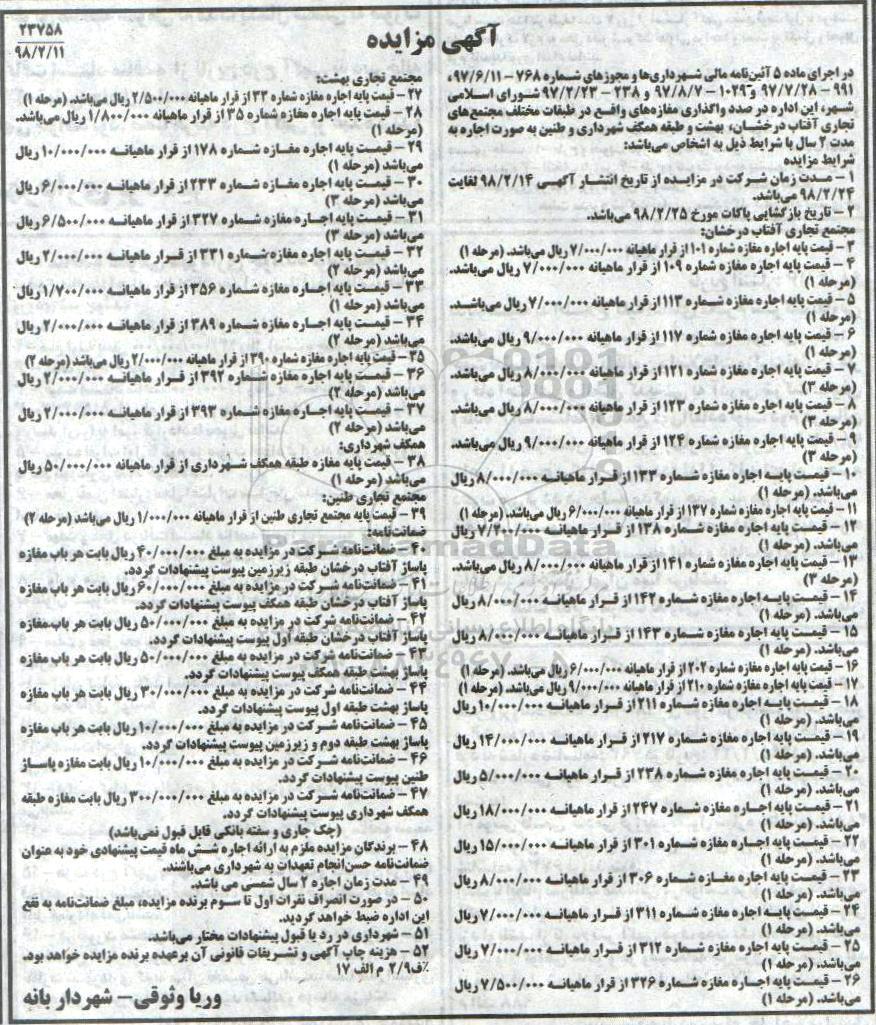 ۲۳۷۵۸
۹۸/۲/۱۱
آگهی مزایده
در اجرای ماده ۵ آئین‌نامه مالی شهرداری‌ها و مجوزهای شماره ۷۶۸ – ۹۷/۶/۱۱،
۹۹۱ – ۹۷/۷/۲۸ و ۱۰۲۹ – ۹۷/۸/۷ و ۲۳۸ – ۹۷/۲/۲۳ شورای اسلامی
شهر، این اداره در صدد واگذاری مغازه‌های واقع در طبقات مختلف مجتمع‌های
تجاری آفتاب درخشان، بهشت و طبقه همکف شهرداری و طنین به صورت اجاره به
مدت ۲ سال با شرایط ذیل به اشخاص می‌باشد:
شرایط مزایده
۱ – مدت زمان شرکت در مزایده از تاریخ انتشار آگهی ۹۸/۲/۱۴ لغایت
۹۸/۲/۲۴ می‌باشد.
۲ – تاریخ بازگشایی پاکات مورخ ۹۸/۲/۲۵ می‌باشد.
مجتمع تجاری آفتاب درخشان:
۳ – قیمت پایه اجاره مغازه شماره ۱۰۱ از قرار ماهیانه ۷/۰۰۰/۰۰۰ ریال می‌باشد. (مرحله ۱)
۴ – قیمت پایه اجاره مغازه شماره ۱۰۹ از قرار ماهیانه ۷/۰۰۰/۰۰۰ ریال می‌باشد.
(مرحله ۱)
۵ – قیمت پایه اجاره مغازه شماره ۱۱۳ از قرار ماهیانه ۷/۰۰۰/۰۰۰ ریال می‌باشد.
(مرحله ۱)
۶ – قیمت پایه اجاره مغازه شماره ۱۱۷ از قرار ماهیانه ۹/۰۰۰/۰۰۰ ریال می‌باشد.
(مرحله ۱)
۷ – قیمت پایه اجاره مغازه شماره ۱۲۱ از قرار ماهیانه ۸/۰۰۰/۰۰۰ ریال می‌باشد.
(مرحله ۳)
۸ – قیمت پایه اجاره مغازه شماره ۱۲۳ از قرار ماهیانه ۸/۰۰۰/۰۰۰ ریال می‌باشد.
(مرحله ۳)
۹ – قیمت پایه اجاره مغازه شماره ۱۲۴ از قرار ماهیانه ۹/۰۰۰/۰۰۰ ریال می‌باشد.
(مرحله ۳)
۱۰ – قیمت پایه اجاره مغازه شماره ۱۳۳ از قرار ماهیانه ۸/۰۰۰/۰۰۰ ریال
می‌باشد. (مرحله ۱)
۱۱ – قیمت پایه اجاره مغازه شماره ۱۳۷ از قرار ماهیانه ۶/۰۰۰/۰۰۰ ریال می‌باشد. (مرحله ۱)
۱۲ – قیمت پایه اجاره مغازه شماره ۱۳۸ از قرار ماهیانه ۷/۲۰۰/۰۰۰ ریال
می‌باشد. (مرحله ۱)
۱۳ – قیمت پایه اجاره مغازه شماره ۱۴۱ از قرار ماهیانه ۸/۰۰۰/۰۰۰ ریال می‌باشد.
(مرحله ۳)
۱۴ – قیمت پایه اجاره مغازه شماره ۱۴۲ از قرار ماهیانه ۸/۰۰۰/۰۰۰ ریال
می‌باشد. (مرحله ۱)
۱۵ – قیمت پایه اجاره مغازه شماره ۱۴۳ از قرار ماهیانه ۸/۰۰۰/۰۰۰ ریال
می‌باشد. (مرحله ۱)
۱۶ – قیمت پایه اجاره مغازه شماره ۲۰۲ از قرار ماهیانه ۶/۰۰۰/۰۰۰ ریال می‌باشد. (مرحله ۱)
۱۷ – قیمت پایه اجاره مغازه شماره ۲۱۰ از قرار ماهیانه ۹/۰۰۰/۰۰۰ ریال می‌باشد. (مرحله ۱)
۱۸ – قیمت پایه اجاره مغازه شماره ۲۱۱ از قرار ماهیانه ۱۰/۰۰۰/۰۰۰ ریال
می‌باشد. (مرحله ۱)
۱۹ – قیمت پایه اجاره مغازه شماره ۲۱۷ از قرار ماهیانه ۱۴/۰۰۰/۰۰۰ ریال
می‌باشد. (مرحله ۱)
۲۰ – قیمت پایه اجاره مغازه شماره ۲۳۸ از قرار ماهیانه ۵/۰۰۰/۰۰۰ ریال
می‌باشد. (مرحله ۱)
۲۱ – قیمت پایه اجاره مغازه شماره ۲۴۷ از قرار ماهیانه ۱۸/۰۰۰/۰۰۰ ریال
می‌باشد. (مرحله ۱)
۲۲ – قیمت پایه اجاره مغازه شماره ۳۰۱ از قرار ماهیانه ۱۵/۰۰۰/۰۰۰ ریال
می‌باشد. (مرحله ۱)
۲۳ – قیمت پایه اجاره مغازه شماره ۳۰۶ از قرار ماهیانه ۸/۰۰۰/۰۰۰ ریال
می‌باشد. (مرحله ۱)
۲۴ – قیمت پایه اجاره مغازه شماره ۳۱۱ از قرار ماهیانه ۷/۰۰۰/۰۰۰ ریال
می‌باشد. (مرحله ۱)
۲۵ – قیمت پایه اجاره مغازه شماره ۳۱۲ از قرار ماهیانه ۷/۰۰۰/۰۰۰ ریال
می‌باشد. (مرحله ۱)
۲۶ – قیمت پایه اجاره مغازه شماره ۳۲۶ از قرار ماهیانه ۷/۵۰۰/۰۰۰ ریال
می‌باشد. (مرحله ۱)
مجتمع تجاری بهشت:
۲۷ – قیمت پایه اجاره مغازه شماره ۳۳ از قرار ماهیانه ۲/۵۰۰/۰۰۰ ریال می‌باشد. (مرحله ۱)
۲۸ – قیمت پایه اجاره مغازه شماره ۳۵ از قرار ماهیانه ۱/۸۰۰/۰۰۰ ریال می‌باشد.
(مرحله ۱)
۲۹ – قیمت پایه اجاره مغازه شماره ۱۷۸ از قرار ماهیانه ۱۰/۰۰۰/۰۰۰ ریال
می‌باشد (مرحله ۱)
۳۰ – قیمت پایه اجاره مغازه شماره ۲۳۳ از قرار ماهیانه ۶/۰۰۰/۰۰۰ ریال
می‌باشد (مرحله ۳)
۳۱ – قیمت پایه اجاره مغازه شماره ۳۲۷ از قرار ماهیانه ۶/۵۰۰/۰۰۰ ریال
می‌باشد (مرحله ۳)
۳۲ – قیمت پایه اجاره مغازه شماره ۳۳۱ از قرار ماهیانه ۲/۰۰۰/۰۰۰ ریال
می‌باشد (مرحله ۲)
۳۳ – قیمت پایه اجاره مغازه شماره ۳۵۶ از قرار ماهیانه ۱/۷۰۰/۰۰۰ ریال
می‌باشد (مرحله ۱)
۳۴ – قیمت پایه اجاره مغازه شماره ۳۸۹ از قرار ماهیانه ۲/۰۰۰/۰۰۰ ریال
می‌باشد (مرحله ۲)
۳۵ – قیمت پایه اجاره مغازه شماره ۳۹۰ از قرار ماهیانه ۲/۰۰۰/۰۰۰ ریال می‌باشد (مرحله ۲)
۳۶ – قیمت پایه اجاره مغازه شماره ۳۹۲ از قرار ماهیانه ۲/۰۰۰/۰۰۰ ریال
می‌باشد (مرحله ۲)
۳۷ – قیمت پایه اجاره مغازه شماره ۳۹۳ از قرار ماهیانه ۲/۰۰۰/۰۰۰ ریال
می‌باشد (مرحله ۲)
همکف شهرداری:
۳۸ – قیمت پایه مغازه طبقه همکف شهرداری از قرار ماهیانه ۵۰/۰۰۰/۰۰۰ ریال
می‌باشد (مرحله ۱)
مجتمع تجاری طنین:
۳۹ – قیمت پایه مجتمع تجاری طنین از قرار ماهیانه ۱/۰۰۰/۰۰۰ ریال می‌باشد (مرحله ۲)
ضمانت‌نامه:
۴۰ – ضمانت‌نامه شرکت در مزایده به مبلغ ۴۰/۰۰۰/۰۰۰ ریال بابت هر باب مغازه
پاساژ آفتاب درخشان طبقه زیرزمین پیوست پیشنهادات گردد.
۴۱ – ضمانت‌نامه شرکت در مزایده به مبلغ ۶۰/۰۰۰/۰۰۰ ریال بابت هر باب مغازه
پاساژ آفتاب درخشان طبقه همکف پیوست پیشنهادات گردد.
۴۲ – ضمانت‌نامه شرکت در مزایده به مبلغ ۵۰/۰۰۰/۰۰۰ ریال بابت هر باب مغازه
پاساژ آفتاب درخشان طبقه اول پیوست پیشنهادات گردد.
۴۳ – ضمانت‌نامه شرکت در مزایده به مبلغ ۵۰/۰۰۰/۰۰۰ ریال بابت هر باب مغازه
پاساژ بهشت طبقه همکف پیوست پیشنهادات گردد.
۴۴ – ضمانت‌نامه شرکت در مزایده به مبلغ ۳۰/۰۰۰/۰۰۰ ریال بابت هر باب مغازه
پاساژ بهشت طبقه اول پیوست پیشنهادات گردد.
۴۵ – ضمانت‌نامه شرکت در مزایده به مبلغ ۱۰/۰۰۰/۰۰۰ ریال بابت هر باب مغازه
پاساژ بهشت طبقه دوم و زیرزمین پیوست پیشنهادات گردد.
۴۶ – ضمانت‌نامه شرکت در مزایده به مبلغ ۱۰/۰۰۰/۰۰۰ ریال بابت مغازه پاساژ
طنین پیوست پیشنهادات گردد.
۴۷ – ضمانت‌نامه شرکت در مزایده به مبلغ ۳۰۰/۰۰۰/۰۰۰ ریال بابت مغازه طبقه
همکف شهرداری پیوست پیشنهادات گردد.
(چک جاری و سفته بانکی قابل قبول نمی‌باشد)
۴۸ – برندگان مزایده ملزم به ارائه اجاره شش ماه قیمت پیشنهادی خود به عنوان
ضمانت‌نامه حسن‌انجام تعهدات به شهرداری می‌باشند.
۴۹ – مدت زمان اجازه ۲ سال شمسی می باشد.
۵۰ – در صورت انصراف نفرات اول تا سوم برنده مزایده، مبلغ ضمانت‌نامه به نفع
این اداره ضبط خواهد گردید.
۵۱ – شهرداری در رد یا قبول پیشنهادات مختار می‌باشد.
۵۲ – هزینه چاپ آگهی و تشریفات قانونی آن برعهده برنده مزایده خواهد بود.
٪ف۲/۹ م الف ۱۷
وریا وثوقی – شهردار بانه
ParsNamadData